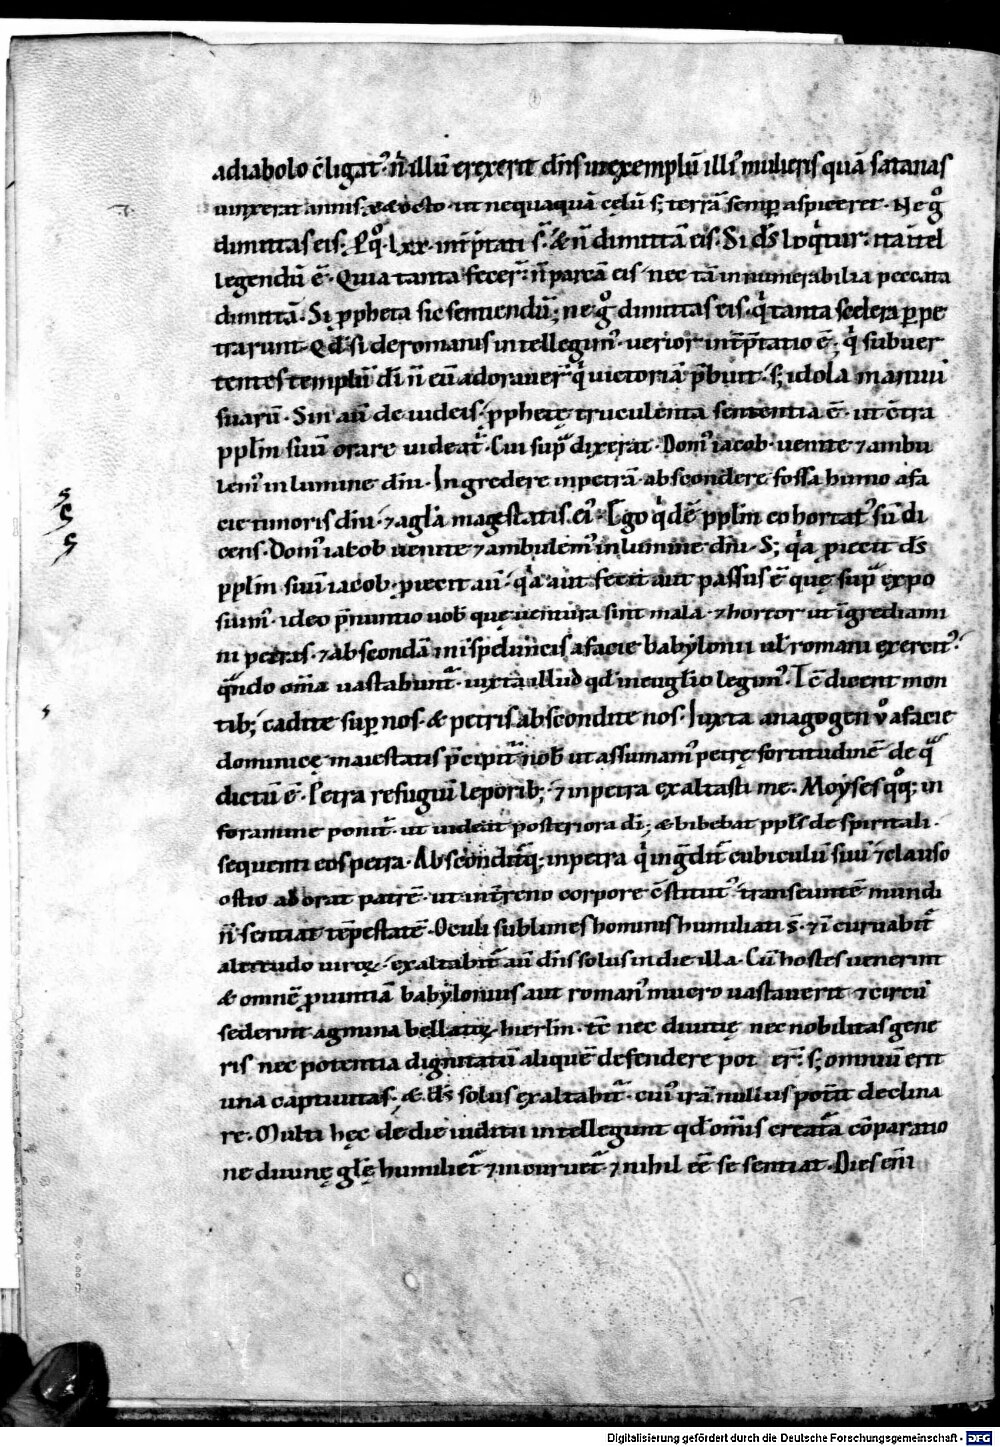 adiabolo c̄ligat᾿· n̄ illū erexerit dn̄s inexemplū illi᾿ mulieris quā satanas
uinxerat annis· x̄ &octo· ut nequaquā cęlū s; terrā semp aspiceret· Ne gͦ
dimittas eis· Qͦ·lxx· int̄p̄tati s̄· & n̄ dimittā eis· Si ds̄ loqͥtur· ita īteł
legendū ē· Quia tanta fecer̄· n̄ parcā eis nec tā innumerabilia peccata
dimittā· Si ꝓpheta sic sentiendū; ne gͦ dimittas eis· qͥ tanta scelera ꝑpe
trarunt· Qd̄ si deromanis intellegim᾿· uerior int̄p̄tatio ē· qͥ subuer
tentes templū dī n̄ eū adorauer̄ qͥ uictoriā p̄buit· s; idola manuū
suarū· Sin aū de iudeis· ꝓphetę truculenta sententia ē· ut c̄tra
ppl̄m suū orare uideat᾿· Cui supͣ dixerat· Dom᾿ iacob· uenite ⁊ ambu
lem᾿ in lumine dn̄i· Ingredere inpetrā· abscondere fossa humo afa
cie timoris dn̄i· ⁊ agl̄a magestatis ei᾿· Ego qͥdē ppl̄m cohortat᾿ sū di
cens· Dom᾿ iacob uenite ⁊ ambulem᾿ in lumine dn̄i· S; qͥa ꝓiecit ds̄
ppl̄m suū iacob· ꝓiecit aū· qͥa aut fecit aut passus ē quę supͣ expo
suim᾿· ideo p̄nuntio uob̄ quę uentura sint mala· ⁊ hortor ut īgrediami
ni petris· ⁊ abscondāmini spelunc̄is afacie babylonii ul̄ romani exercit᾿·
qͣndo om̄ia uastabunt᾿· iuxta illud qd̄ ineugl̄io legim᾿· Tc̄ dicent mon
tib; cadite sup nos· & petris abscondite nos· Iuxta anagogen ůͦ afacie
dominicę maiestatis p̄cipit᾿ nob̄ ut assumam᾿ petrę fortitudinē de qͣ
dictū ē· Petra refugiū leporib; ⁊ inpetra exaltasti me· Moyses qͦq; in
foramine ponit᾿· ut uideat posteriora dī; & bibebat ppl̄s de spiritali·
sequenti eos petra· Absconditq; inpetra qͥ ingͣdit᾿ cubiculū suū ⁊ clauso
ostio adorat patrē· ut int̄reno corpore c̄stitut᾿ transeuntē mundi
n̄ sentiat tēpestatē· Oculi sublimes hominis humiliati s̄· ⁊ ī curuabit᾿
altitudo uiroꝝ· exaltabit᾿ aū dn̄s solus indie illa· Cū hostes uenerint
& omnē ꝓuintiā babylonius aut roman᾿ mucro uastauerit ⁊ circū
sederint agmina bellatoꝝ hierl̄m· tc̄ nec diuitię nec nobilitas gene
ris nec potentia dignitatū aliquē defendere pot er̄· s; omniū erit
una captiuitas· & ds̄ solus exaltabit᾿· cui᾿ irā nullius pot̄it declina
re· Multi hęc dedie iuditii intellegunt qd̄ om̄is creatͣa cōparatio
ne diuinę gl̄ę humiliet᾿ ⁊ incuruet᾿· ⁊ nihil ēē se sentiat· Dies eni̅
Digitalisierung gefördert durch die Deutsche Forschungsgemeinschaft - DFG